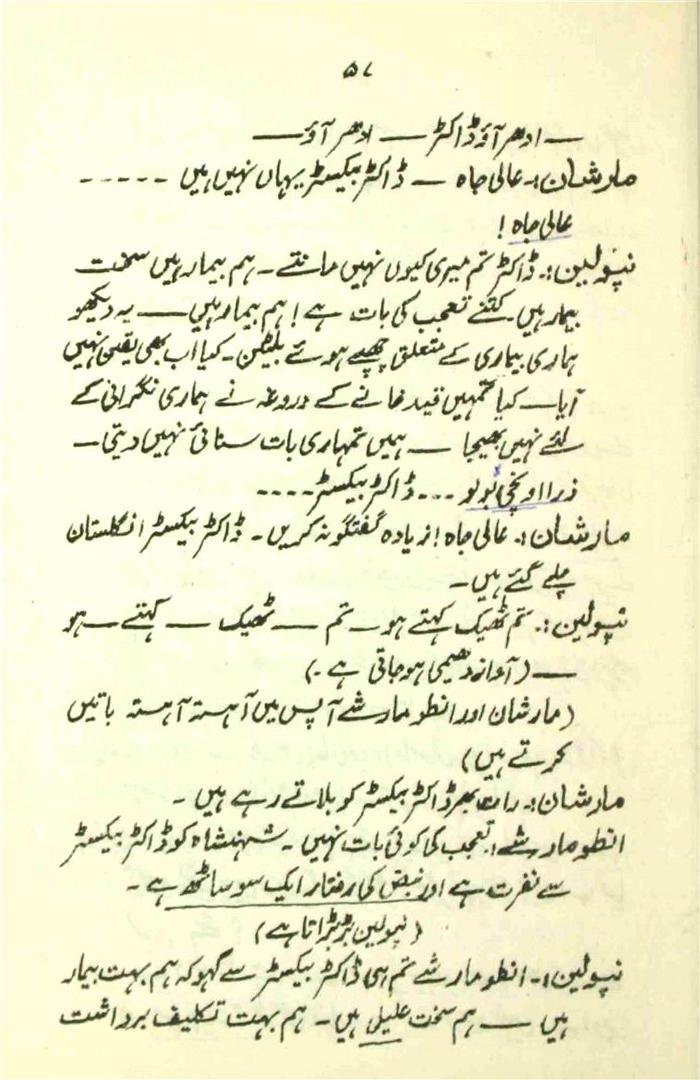 ۵۷
— ادھر آؤ ڈاکٹر — ادھر آؤ —
مارشان:۔ عالی جاہ — ڈاکٹر بیکسٹر یہاں نہیں ہیں ۔۔۔۔۔
عالی جاہ !
نپولین:۔ ڈاکٹر تم میری کیوں نہیں مانتے ۔ ہم بیمار ہیں سخت
بیمار ہیں۔ کتنے تعجب کی بات ہے ! ہم بیمار ہیں — یہ دیکھو
ہماری بیماری کے متعلق چھپے ہوئے بلیٹن ۔ کیا اب بھی یقین نہیں
آیا — کیا تمہیں قید خانے کے دروغہ نے ہماری نگرانی کے
لئے نہیں بھیجا — ہمیں تمہاری بات سنائی نہیں دیتی —
ذرا اونچی بولو ۔۔۔ ڈاکٹر بیکسٹر ۔۔۔۔
مارشان:۔ عالی جاہ ! زیادہ گفتگو نہ کریں ۔ ڈاکٹر بیکسٹر انگلستان
چلے گئے ہیں ۔
نپولین:۔ تم ٹھیک کہتے ہو — تم — ٹھیک — کہتے — ہو
— (آواز دھیمی ہو جاتی ہے ۔)
(مارشان اور انطومارشے آپس میں آہستہ آہستہ باتیں
کرتے ہیں)
مارشان:۔ رات بھر ڈاکٹر بیکسٹر کو بلاتے رہے ہیں ۔
انطومارشے:۔ تعجب کی کوئی بات نہیں ۔ شہنشاہ کو ڈاکٹر بیکسٹر
سے نفرت ہے اور نبض کی رفتار ایک سو ساٹھ ہے ۔
(نپولین بڑبڑاتا ہے)
نپولین:۔ انطومارشے تم ہی ڈاکٹر بیکسٹر سے کہو کہ ہم بہت بیمار
ہیں — ہم سخت علیل ہیں ۔ ہم بہت تکلیف برداشت